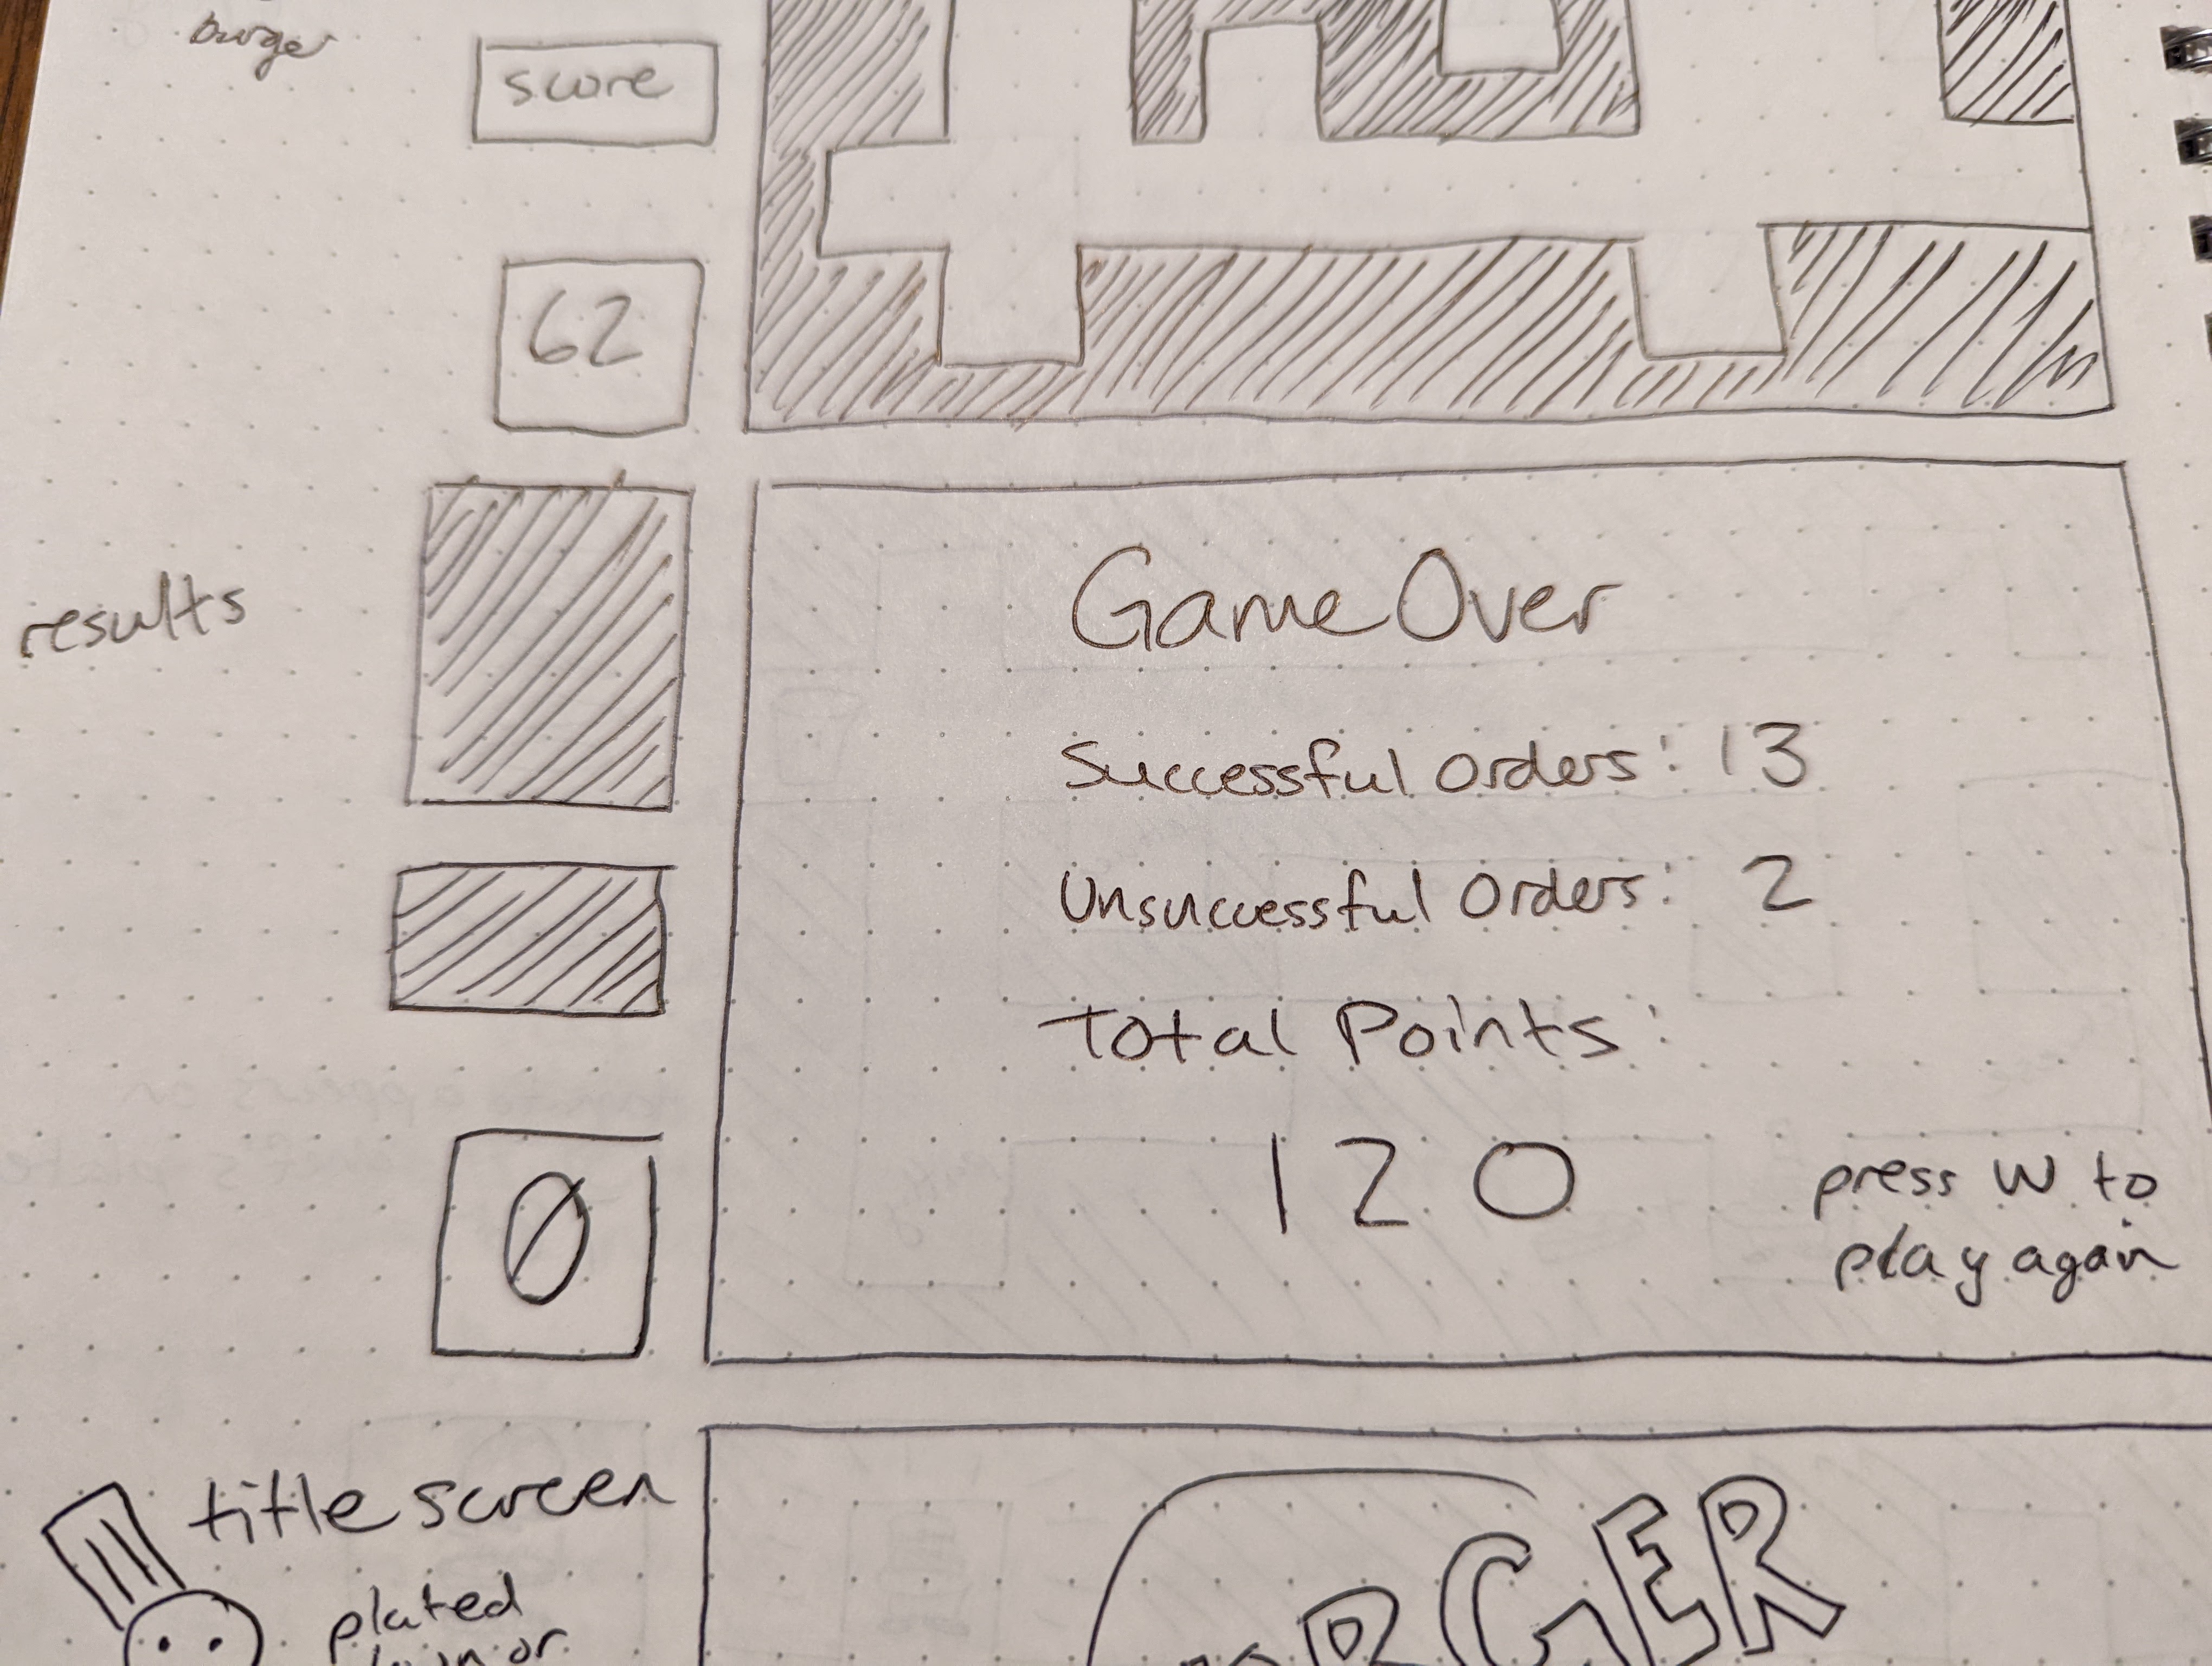 burger
score
62
results
Game Over
Successful Orders: 13
Unsuccessful Orders: 2
Total Points:
120
press W to
play again
0
title screen
plated
or
RGER